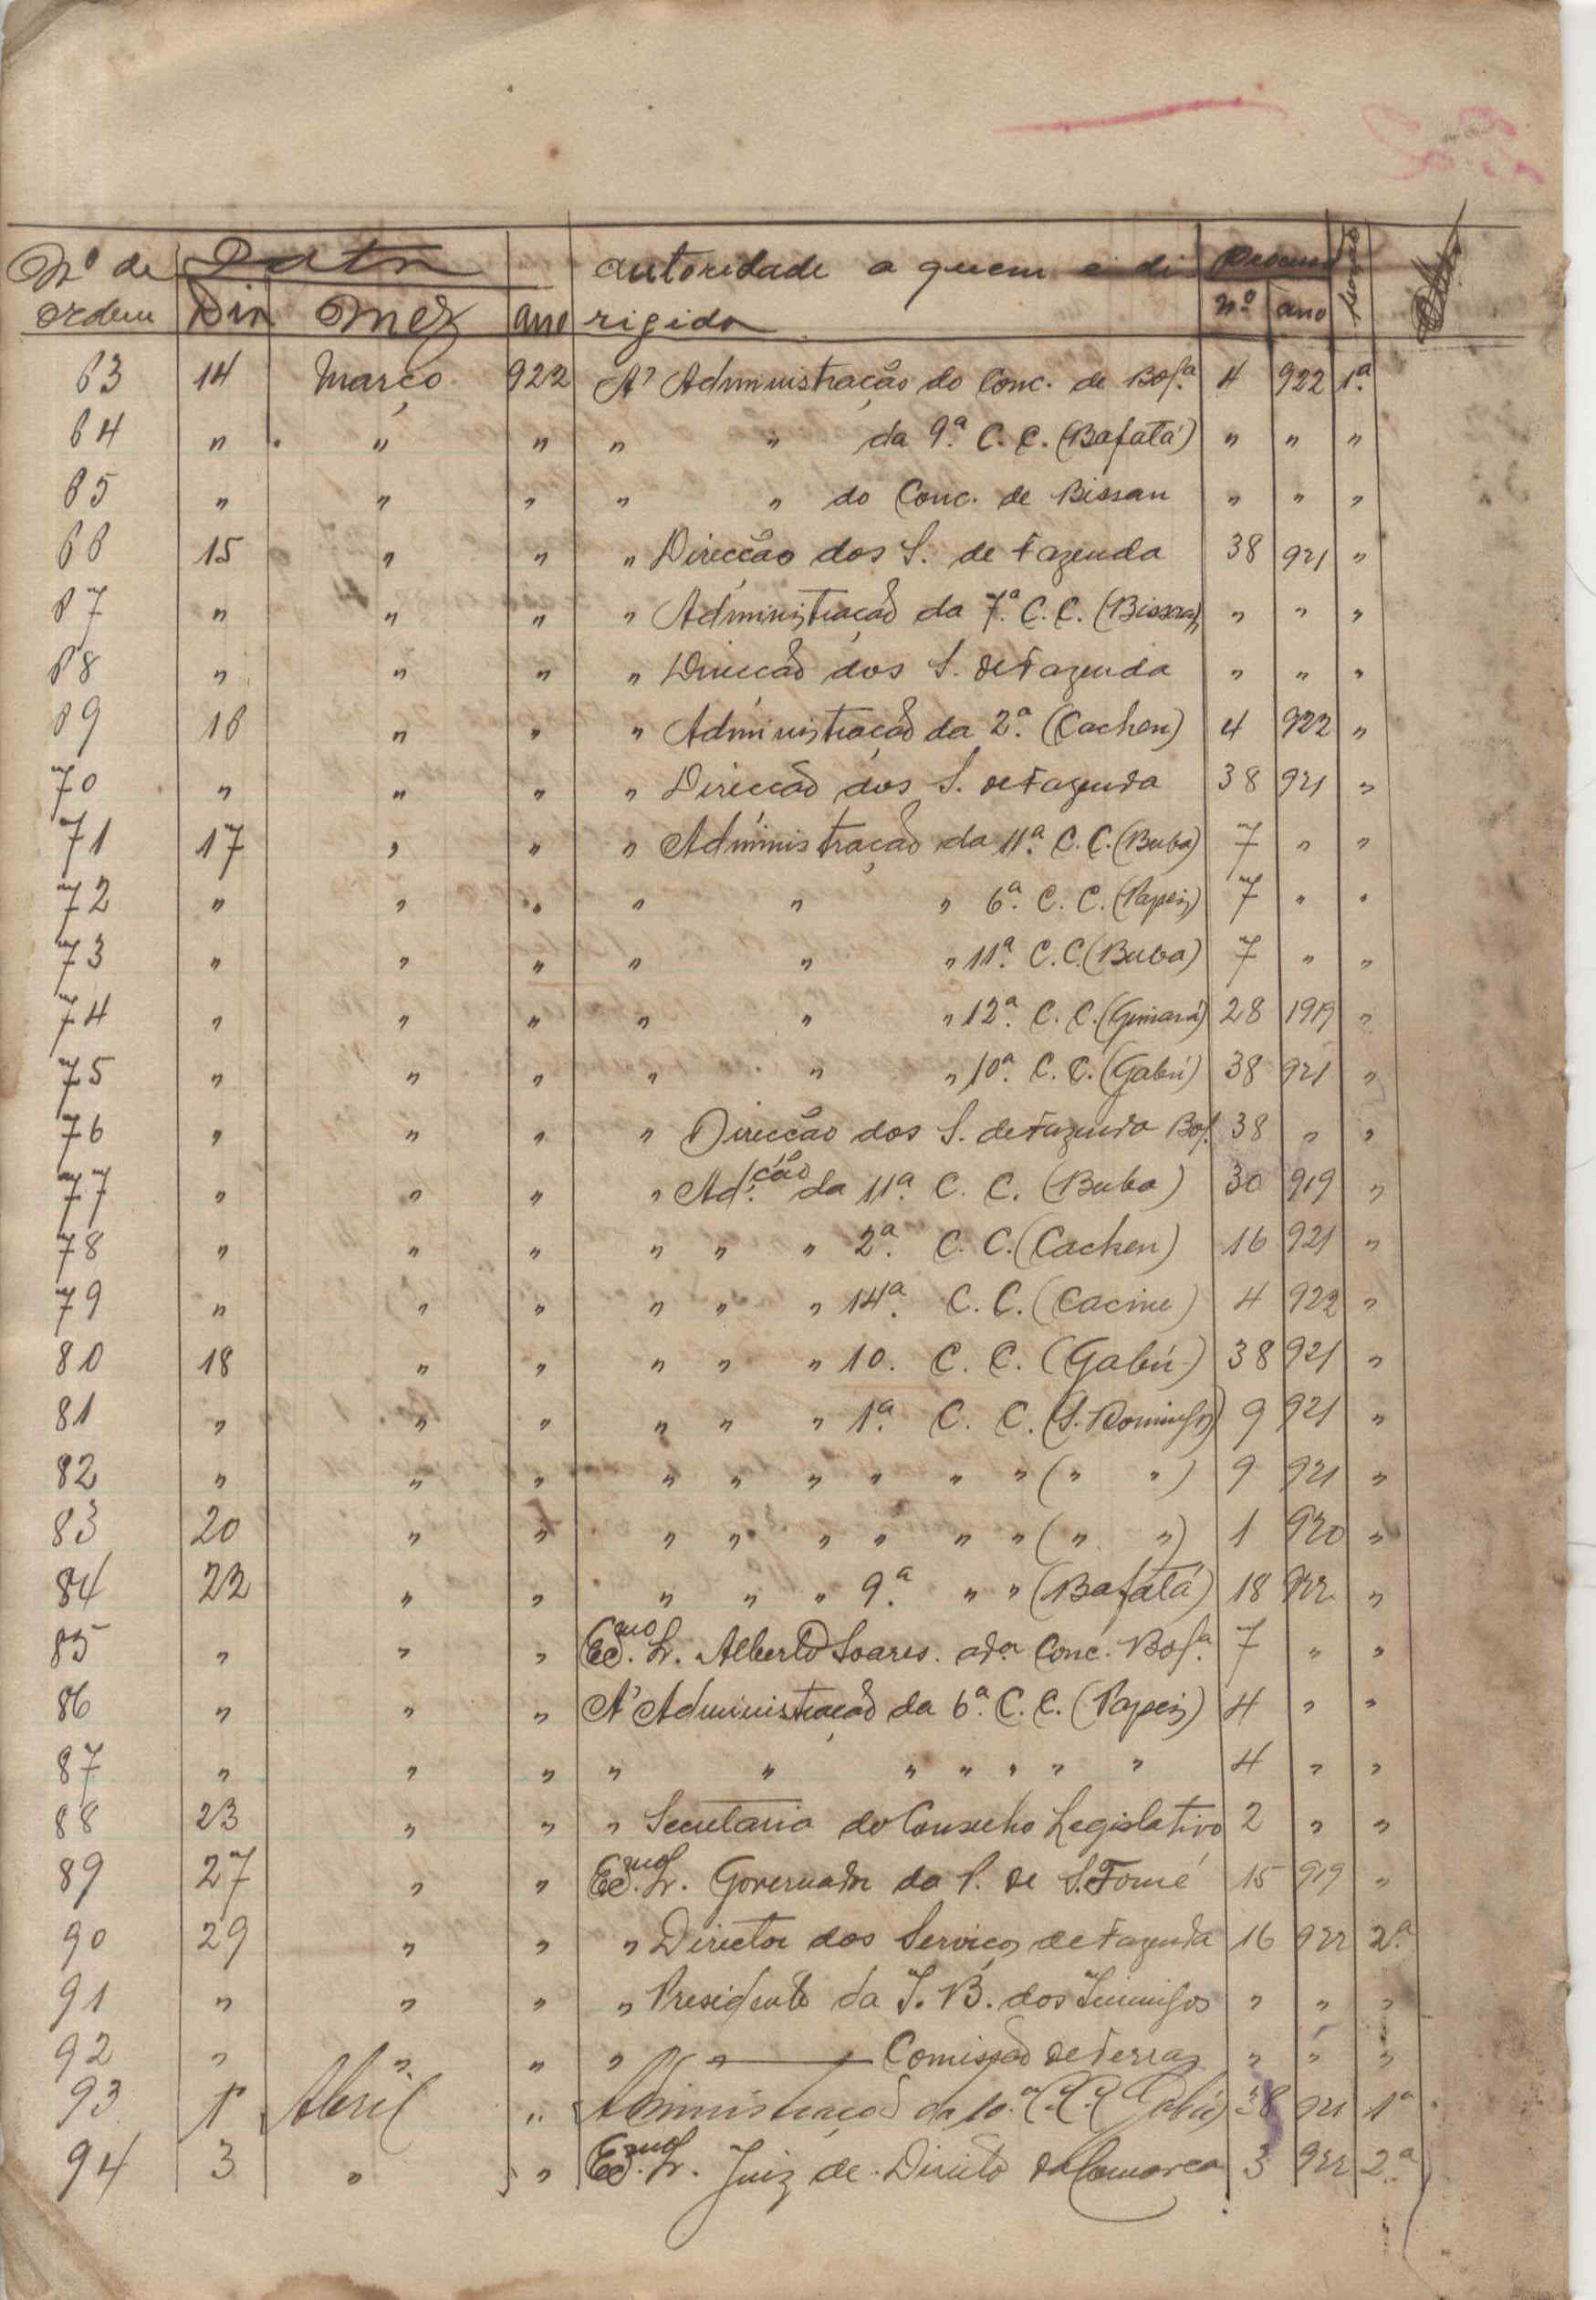 Nº de Data autoridade a quem é di Processo Secção
ordem Dia Mez ano rigida nº ano
63 14 Março 922 A' Administração do Conc. de Bol.ª 4 922 1.ª
64 " " " " " da 9.ª C. C. (Bafatá) " " "
65 " " " " " do Conc. de Bissau " " "
66 15 " " " Direcção dos S. de Fazenda 38 921 "
67 " " " " Administração da 7.ª C. C. " " "
68 " " " " Direcção dos S. de Fazenda " " "
69 16 " " " Administração da 2.ª (Cacheu) 4 922 "
70 " " " " Direcção dos S. de Fazenda 38 921 "
71 17 " " " Administração da 11.ª C. C. (Buba) 7 " "
72 " " " " " " 6.ª C. C. (Papeis) 7 " "
73 " " " " " " 11.ª C. C. (Buba) 7 " "
74 " " " " " " 12.ª C. C. 28 1919 "
75 " " " " " " 10.ª C. C. (Gabú) 38 921 "
76 " " " " Direcção dos S. de Fazenda Bol. 38 " "
77 " " " " Ad.ção da 11.ª C. C. (Buba) 30 919 "
78 " " " " " " 2.ª C. C. (Cacheu) 16 921 "
79 " " " " " " 14.ª C. C. (Cacine) 4 922 "
80 18 " " " " " 10. C. C. (Gabú) 38 921 "
81 " " " " " " 1.ª C. C. (S. Domingos) 9 921 "
82 " " " " " " " " " (" ") 9 921 "
83 20 " " " " " " " " (" ") 1 920 "
84 22 " " " " " 9.ª " " (Bafatá) 18 922 "
85 " " " Ex.mo Sr. Alberto Soares. ad.or Conc. Bol.ª 7 " "
86 " " " A' Administração da 6.ª C. C. (Papeis) 4 " "
87 " " " " " " " " " " 4 " "
88 23 " " " Secretaria do Conselho Legislativo 2 " "
89 27 " " Ex.mo Sr. Governador da P. de S. Tomé 15 919 "
90 29 " " " Director dos Serviços de Fazenda 16 922 2.ª
91 " " " " Presidente da J. B. dos " " "
92 " " " " " Comissão de Terras " " "
93 1º Abril " Administração da 10.ª C. C. (Gabú) 38 921 1ª
94 3 " " Ex.mo Sr. Juiz de Direito da Comarca 3 922 2.ª